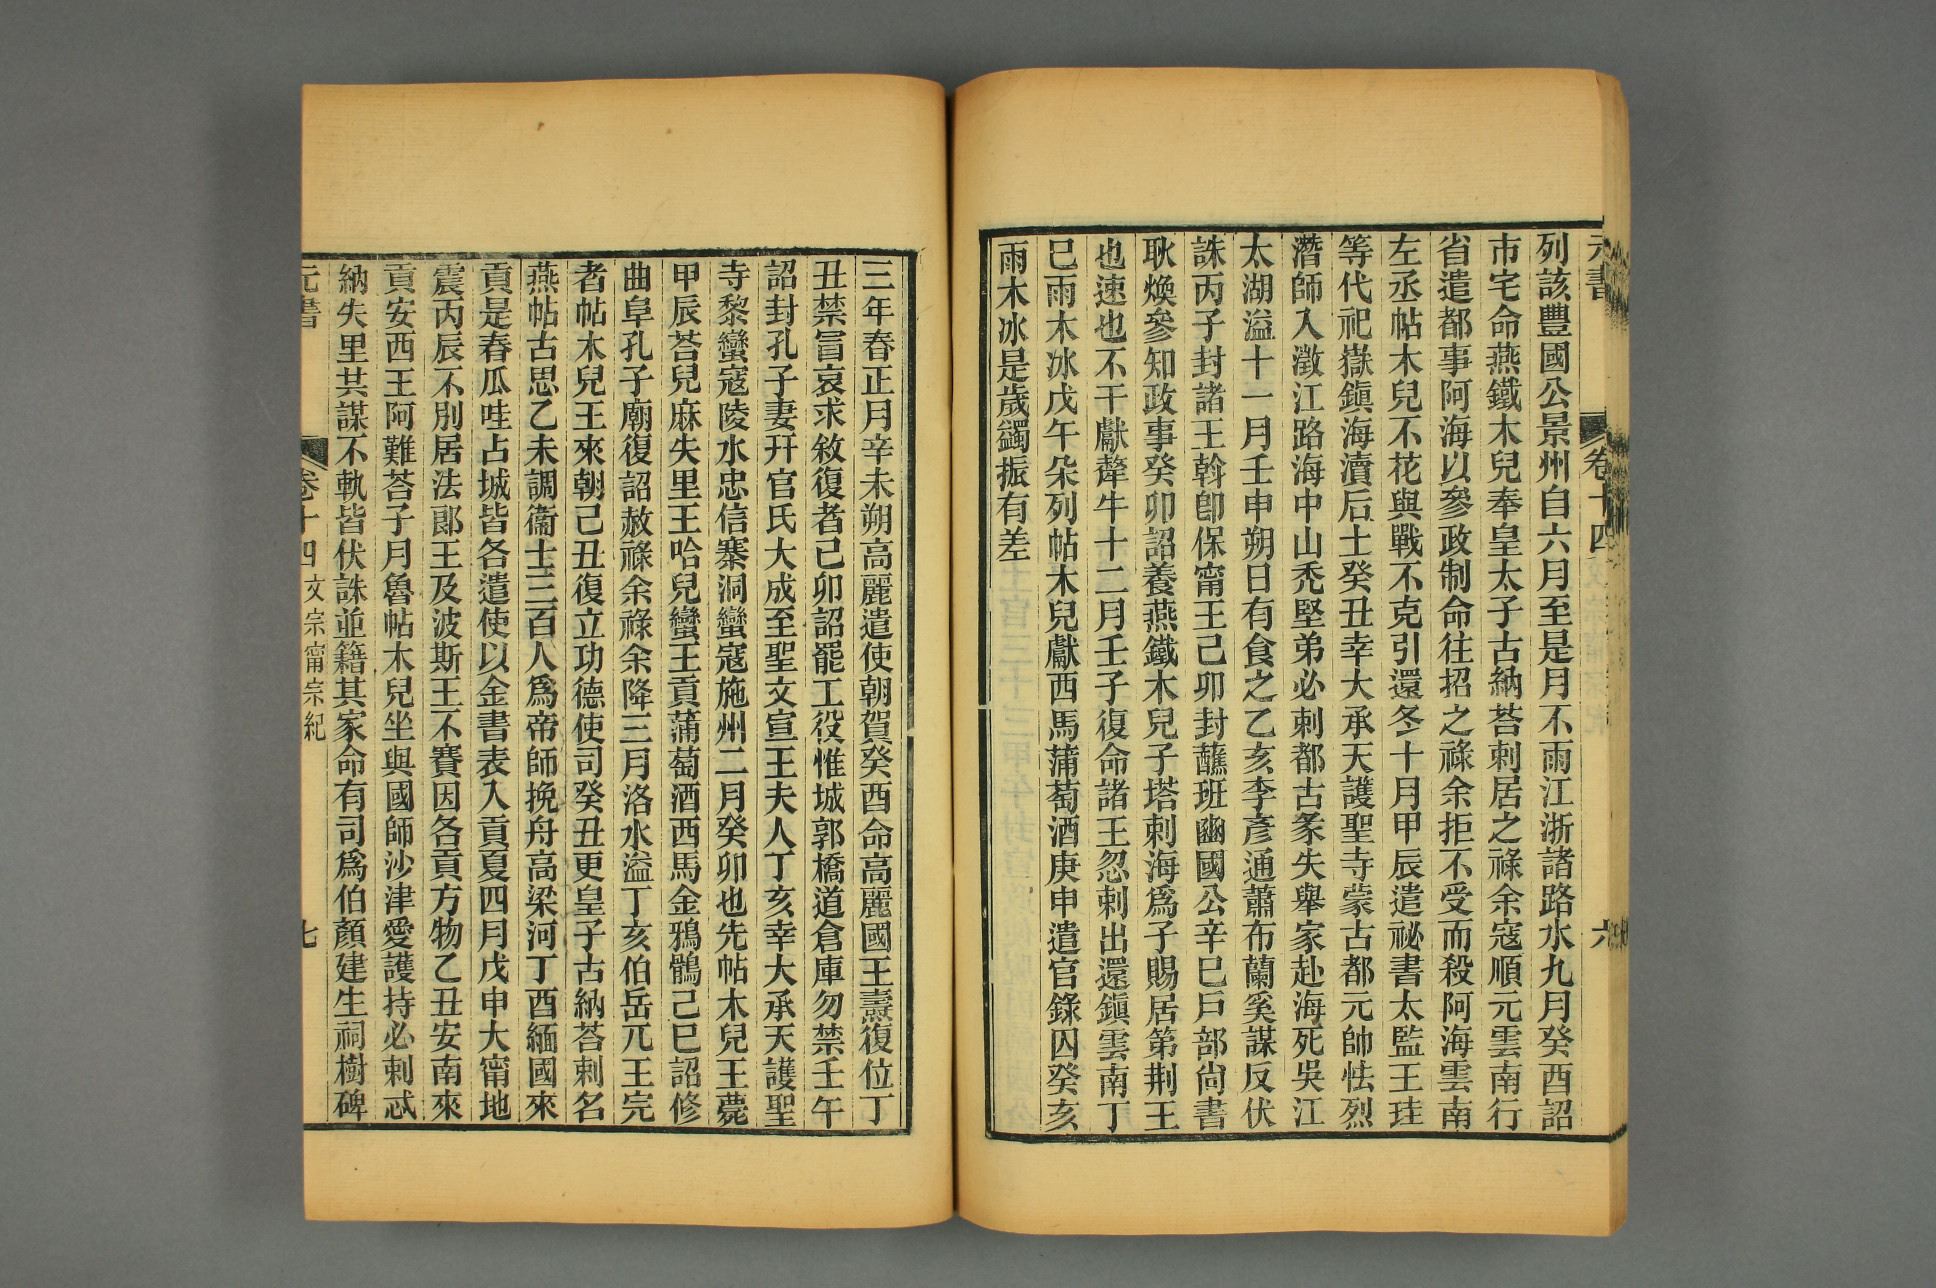 元書 卷十四 六
列該豐國公景州自六月至是月不雨江浙諸路水九月癸酉詔
市宅命燕鐵木兒奉皇太子古納荅剌居之祿余寇順元雲南行
省遣都事阿海以參政制命往招之祿余拒不受而殺阿海雲南
左丞帖木兒不花與戰不克引還冬十月甲辰遣祕書太監王珪
等代祀嶽鎮海瀆后土癸丑幸大承天護聖寺蒙古都元帥怯烈
潛師入澂江路海中山禿堅弟必剌都古彖失舉家赴海死吳江
太湖溢十一月壬申朔日有食之乙亥李彥通蕭布蘭奚謀反伏
誅丙子封諸王斡卽保甯王己卯封醮班豳國公辛巳戶部尙書
耿煥參知政事癸卯詔養燕鐵木兒子塔剌海爲子賜居第荆王
也速也不干獻犛牛十二月壬子復命諸王忽剌出還鎮雲南丁
巳雨木冰戊午朵列帖木兒獻西馬蒲萄酒庚申遣官錄囚癸亥
雨木冰是歲蠲振有差
三年春正月辛未朔高麗遣使朝賀癸酉命高麗國王燾復位丁
丑禁冒哀求敘復者己卯詔罷工役惟城郭橋道倉庫勿禁壬午
詔封孔子妻幵官氏大成至聖文宣王夫人丁亥幸大承天護聖
寺黎蠻寇陵水忠信寨洞蠻寇施州二月癸卯也先帖木兒王薨
甲辰荅兒麻失里王哈兒蠻王貢蒲萄酒西馬金鴉鶻己巳詔修
曲阜孔子廟復詔赦祿余祿余降三月洛水溢丁亥伯岳兀王完
者帖木兒王來朝己丑復立功德使司癸丑更皇子古納荅剌名
燕帖古思乙未調衞士三百人爲帝師挽舟高梁河丁酉緬國來
貢是春瓜哇占城皆各遣使以金書表入貢夏四月戊申大甯地
震丙辰不別居法郞王及波斯王不賽因各貢方物乙丑安南來
貢安西王阿難荅子月魯帖木兒坐與國師沙津愛護持必剌忒
納失里其謀不軌皆伏誅並籍其家命有司爲伯顏建生祠樹碑
元書 卷十四 文宗甯宗紀 七